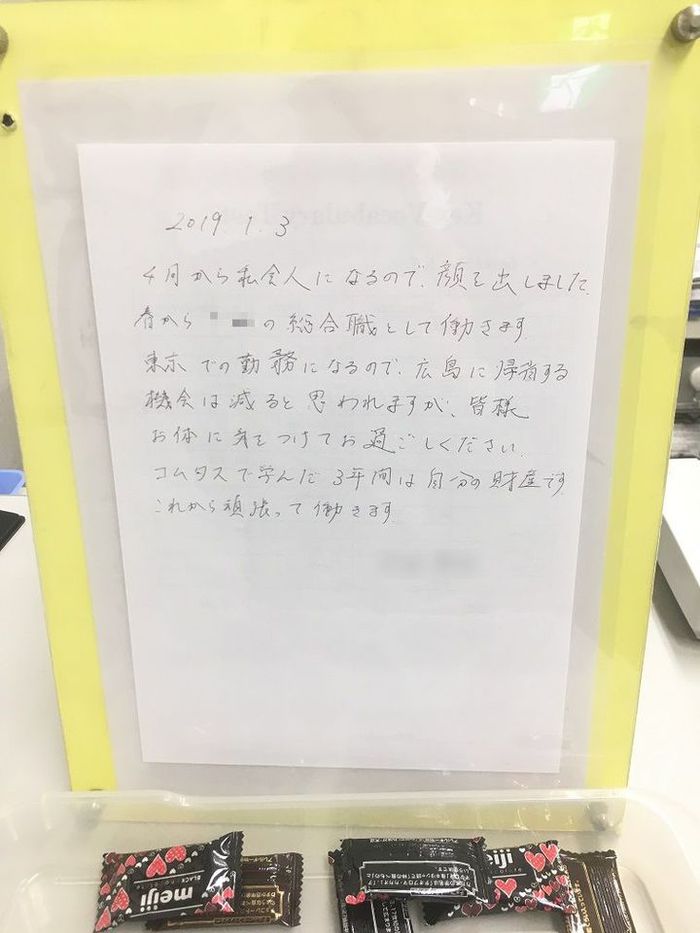 2019. 1. 3
4月から社会人になるので、顔を出しました。
春から の総合職として働きます。
東京での勤務になるので、広島に帰省する
機会は減ると思われますが、皆様
お体に気をつけてお過ごしください。
コムタスで学んだ3年間は自分の財産です。
これから頑張って働きます。
meiji
BLACK